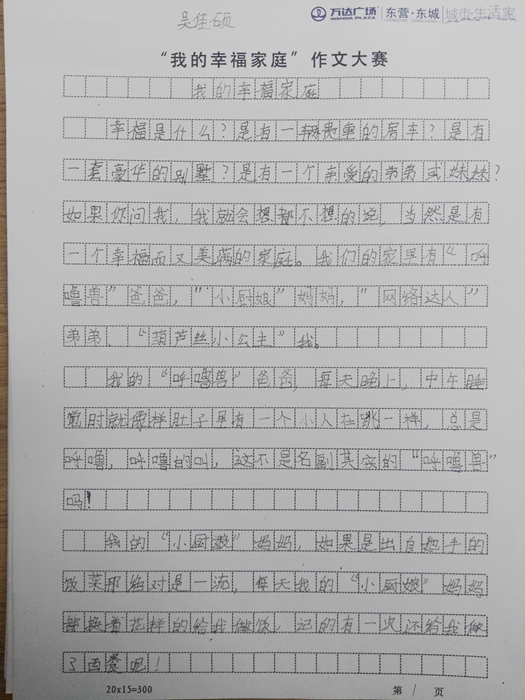 吴佳硕
万达广场
WANDA PLAZA
东营·东城
城市生活家
“我的幸福家庭”作文大赛
我的幸福家庭
幸福是什么?是有一辆贵重的房车?是有
一套豪华的别墅?是有一个亲爱的弟弟或妹妹?
如果你问我,我就会想都不想的说,当然是有
一个幸福而又美满的家庭。我们的家里有“呼
噜兽”爸爸,“小厨娘”妈妈,“网络达人”
弟弟,“葫芦丝小公主”我。
我的“呼噜兽”爸爸,每天晚上,中午睡
觉时就像样肚子里有一个小人在跳一样,总是
呼噜,呼噜的叫,这不是名副其实的“呼噜兽”
吗!
我的“小厨娘”妈妈,如果是出自她手的
饭菜那绝对是一流,每天我的“小厨娘”妈妈
都换着花样的给我做饭,记的有一次还给我做
了西餐呢!
20x15=300
第1页